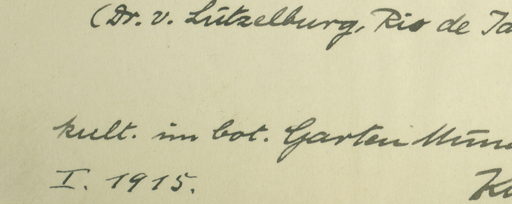 (Dr. v. Lützelburg, Rio de Ja
kult. im bot. Garten Mün
I. 1915.